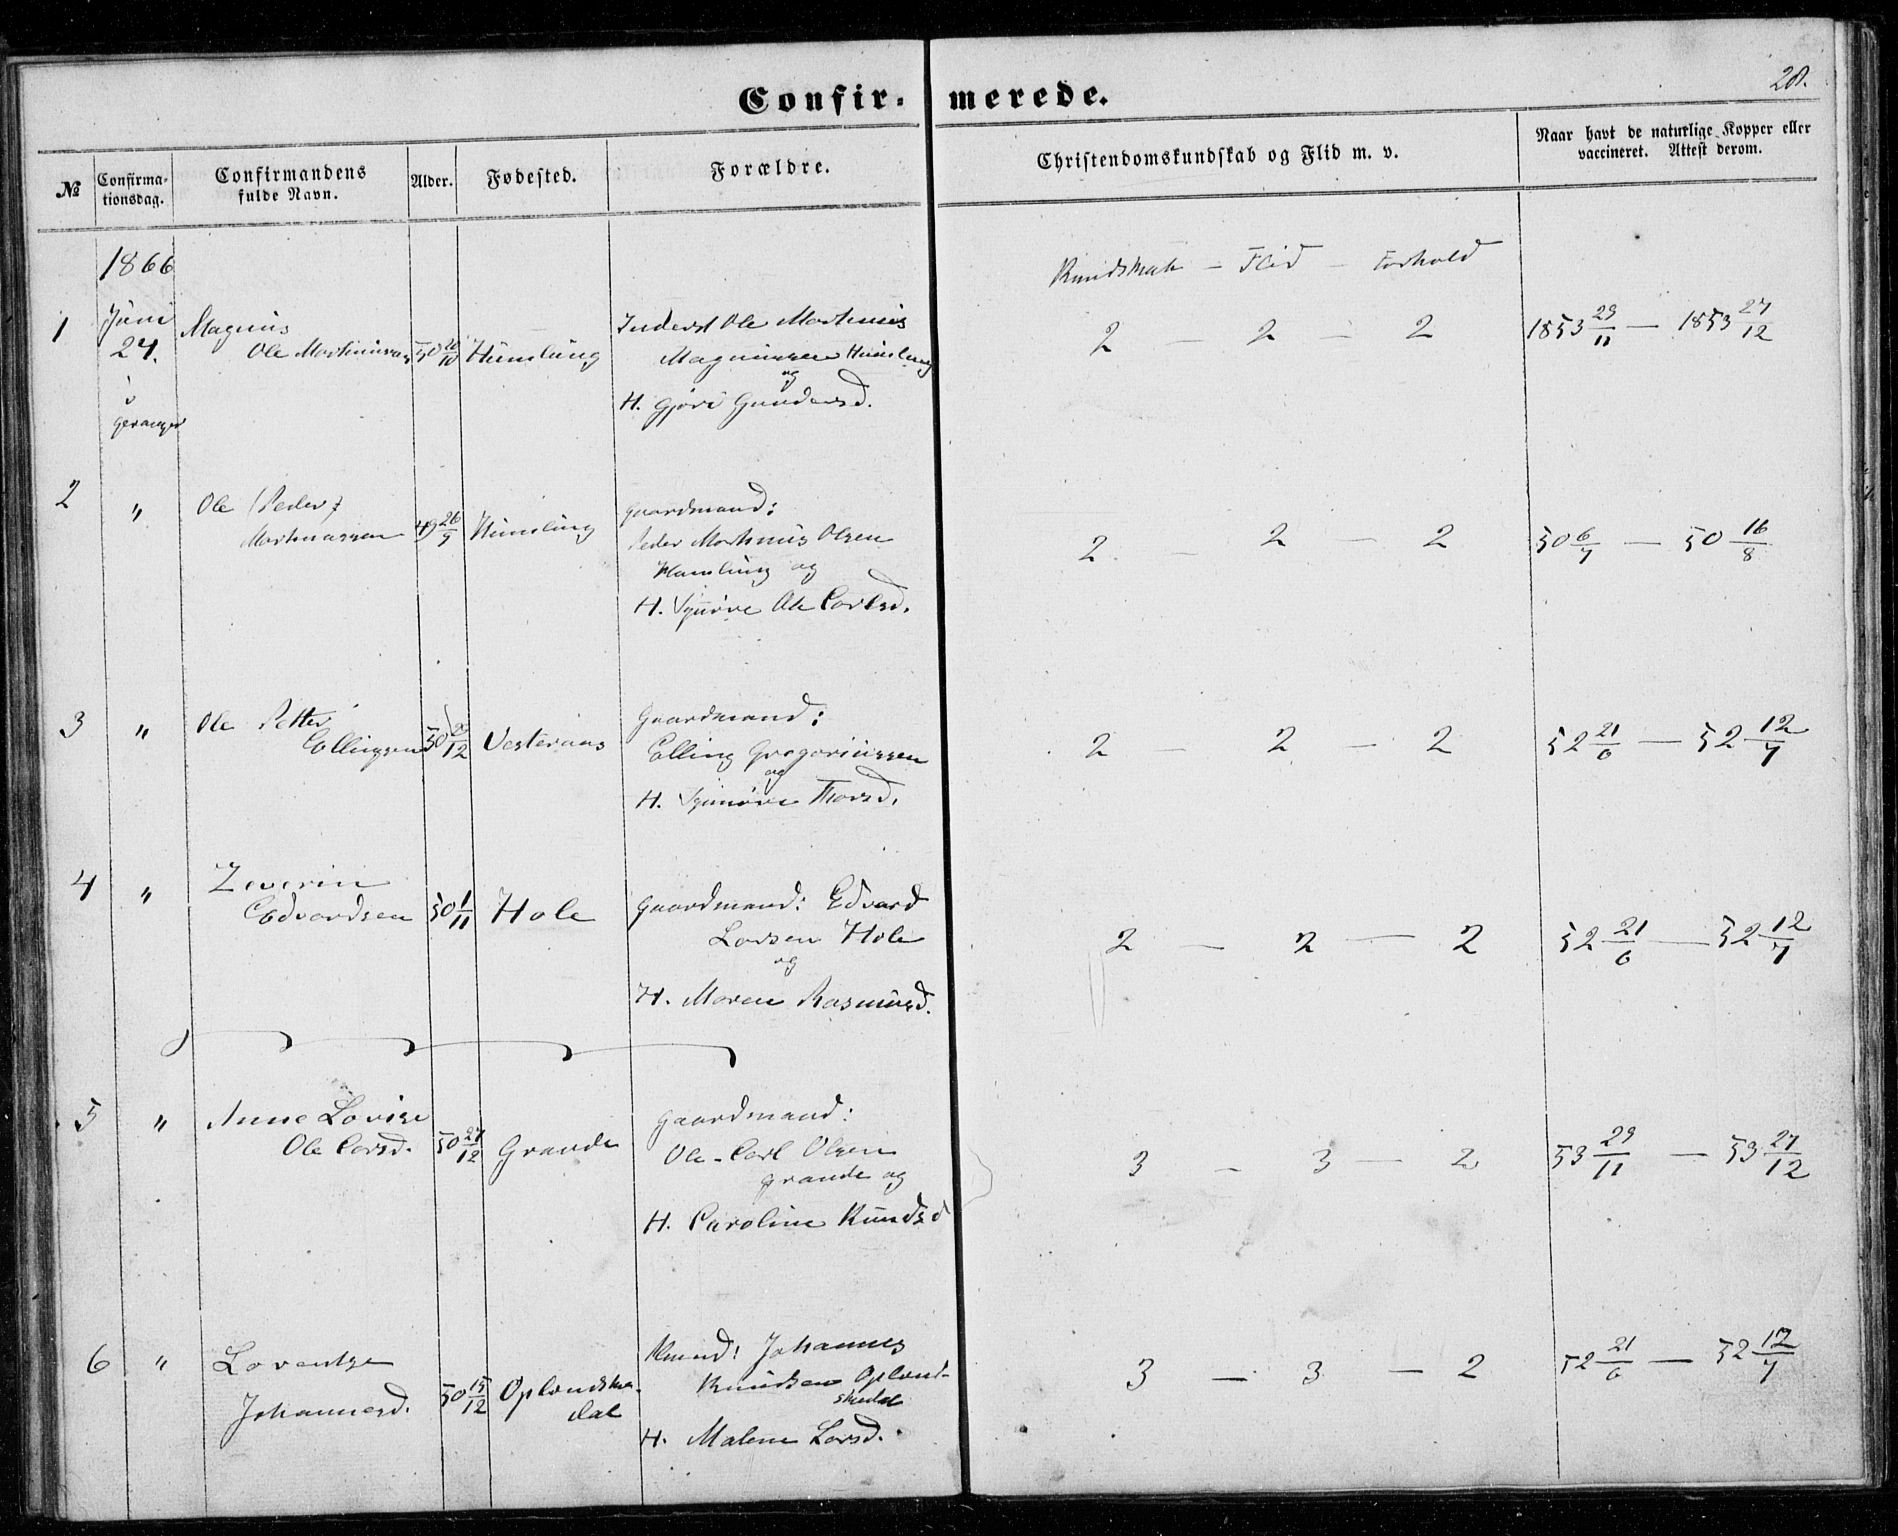 28.
Confir- merede.
№
Confirma-
tionsdag.
Confirmandens
fulde Navn.
Alder.
Fødested.
Forældre.
Christendomskundskab og Flid m. v.
Naar havt de naturlige Kopper eller
vaccineret. Attest derom.
1866
Kundskab - Flid - Forhold
1 Juni 24. i Geranger
Magnus
Ole Martinus
50 10 Humlung
Inderst Ole Martinus
Magnussen Humlung
og
H. Gjøri Gundersd.
2 - 2 - 2
1853 29/11 - 1853 27/12
2 " Ole (Peder)
Martinussen
49 26/9 Humlung
Gaardmand:
Peder Martinus Olsen
Humlung og
H. Synøve Ole Carlsd.
2 - 2 - 2
50 6/7 - 50 16/8
3 " Ole Petter
Ellingsen
50 /12 Vesteraas
Gaardmand:
Elling Gregoriussen
og
H. Synnøve Thorsd.
2 - 2 - 2
52 21/6 - 52 12/7
4 " Zeverin
Edvardsen
50 1/11 Hole
Gaardmand: Edvard
Larsen Hole
og
H. Maren Rasmusd.
2 - 2 - 2
52 21/6 - 52 12/7
5 " Anne Lovise
Ole Carsd.
50 27/12 Grande
Gaardmand:
Ole-Carl Olsen
Grande og
H. Caroline Knudsd
3 - 3 - 2
53 29/11 - 53 27/12
6 " Lorentze
Johannesd.
50 15/12 Oplandske-
dal
Johannes
Knudsen Opland-
skedal
H. Malene Larsd.
3 - 3 - 2
52 21/6 - 52 12/7